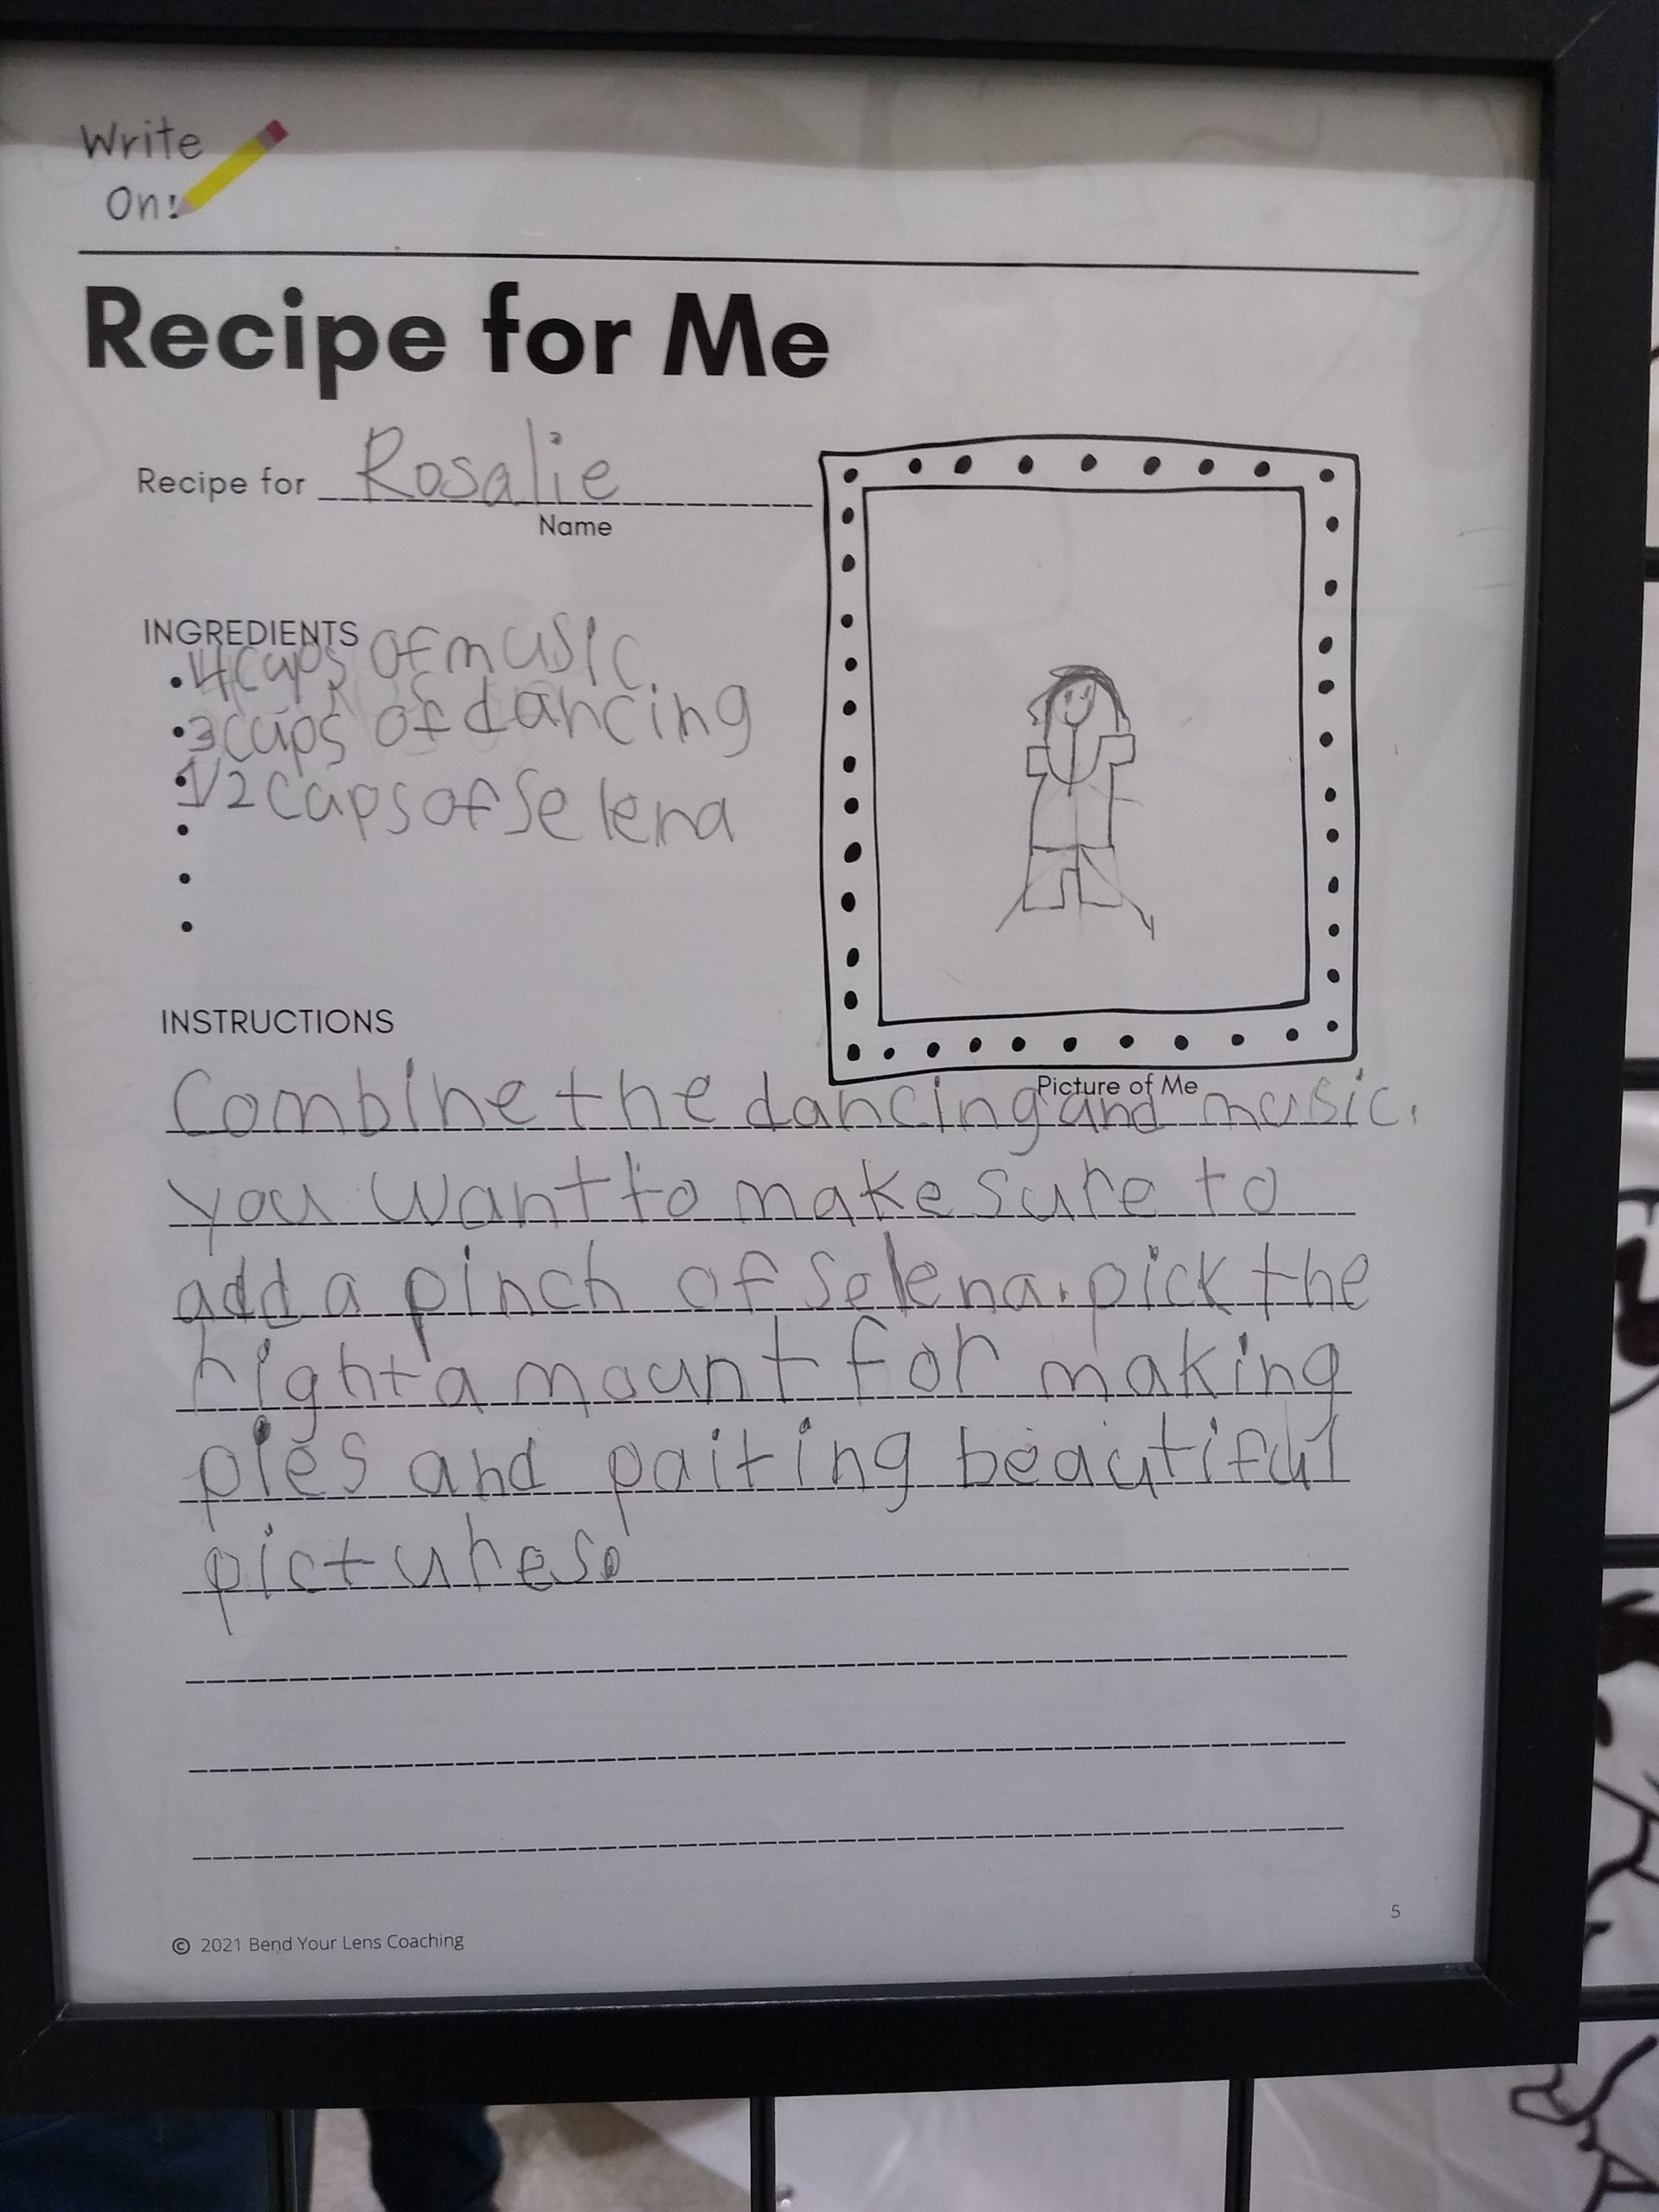 Write
On!
Recipe for Me
Recipe for Rosalie
Name
INGREDIENTS
• 4 cups of music
• 3 cups of dancing
• 1/2 cups of Selena
•
•
•
Picture of Me
INSTRUCTIONS
Combine the dancing and music.
you want to make sure to
add a pinch of Selena. pick the
right amount for making
pies and paiting beautiful
pictures.
5
© 2021 Bend Your Lens Coaching